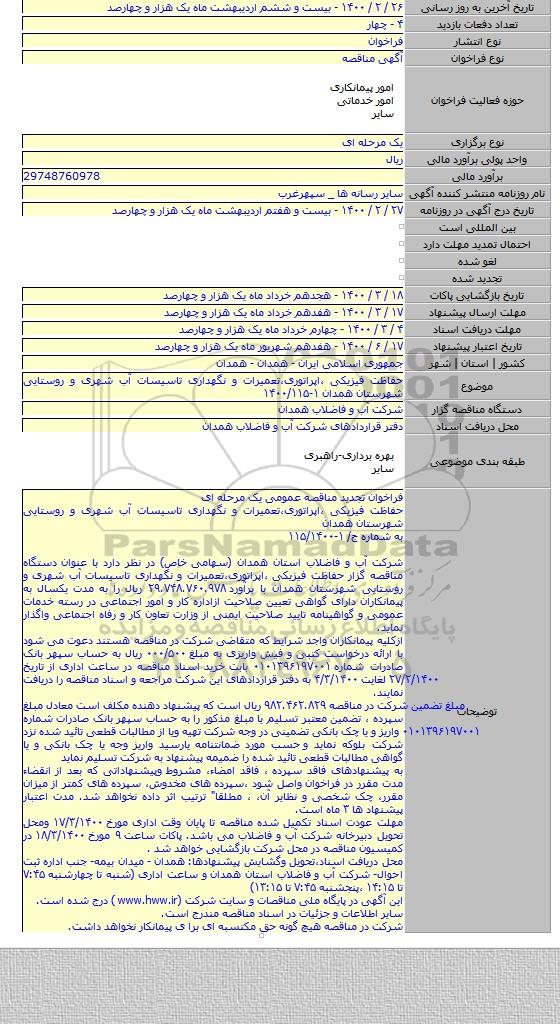 تاریخ آخرین به روز رسانی ۲۶ / ۲ / ۱۴۰۰ - بیست و ششم اردیبهشت ماه یک هزار و چهارصد
تعداد دفعات بازدید ۴ - چهار
نوع انتشار فراخوان
نوع فراخوان آگهی مناقصه
حوزه فعالیت فراخوان
امور پیمانکاری
امور خدماتی
سایر
نوع برگزاری یک مرحله ای
واحد پولی برآورد مالی ریال
برآورد مالی 29748760978
نام روزنامه منتشر کننده آگهی سایر رسانه ها _ سپهرغرب
تاریخ درج آگهی در روزنامه ۲۷ / ۲ / ۱۴۰۰ - بیست و هفتم اردیبهشت ماه یک هزار و چهارصد
بین المللی است
احتمال تمدید مهلت دارد
لغو شده
تجدید شده
تاریخ بازگشایی پاکات ۱۸ / ۳ / ۱۴۰۰ - هجدهم خرداد ماه یک هزار و چهارصد
مهلت ارسال پیشنهاد ۱۷ / ۳ / ۱۴۰۰ - هفدهم خرداد ماه یک هزار و چهارصد
مهلت دریافت اسناد ۴ / ۳ / ۱۴۰۰ - چهارم خرداد ماه یک هزار و چهارصد
تاریخ اعتبار پیشنهاد ۱۷ / ۶ / ۱۴۰۰ - هفدهم شهریور ماه یک هزار و چهارصد
کشور | استان | شهر جمهوری اسلامی ایران - همدان - همدان
موضوع
حفاظت فیزیکی ،اپراتوری،تعمیرات و نگهداری تاسیسات آب شهری و روستایی
شهرستان همدان ۱-۱۴۰۰/۱۱۵
دستگاه مناقصه گزار شرکت آب و فاضلاب همدان
محل دریافت اسناد دفتر قراردادهای شرکت آب و فاضلاب همدان
طبقه بندی موضوعی
بهره برداری-راهبری
سایر
توضیحات
فراخوان تجدید مناقصه عمومی یک مرحله ای
حفاظت فیزیکی ،اپراتوری،تعمیرات و نگهداری تاسیسات آب شهری و روستایی
شهرستان همدان
به شماره ج/ ۱-۱۱۵/۱۴۰۰
شرکت آب و فاضلاب استان همدان (سهامی خاص) در نظر دارد با عنوان دستگاه
مناقصه گزار حفاظت فیزیکی ،اپراتوری،تعمیرات و نگهداری تاسیسات آب شهری و
روستایی شهرستان همدان با برآورد ۲۹.۷۴۸.۷۶۰.۹۷۸ ریال را به مدت یکسال به
پیمانکاران دارای گواهی تعیین صلاحیت ازاداره کار و امور اجتماعی در رسته خدمات
عمومی و گواهینامه تایید صلاحیت ایمنی از وزارت تعاون کار و رفاه اجتماعی واگذار
نماید.
ازکلیه پیمانکاران واجد شرایط که متقاضی شرکت در مناقصه هستند دعوت می شود
با ارائه درخواست کتبی و فیش واریزی به مبلغ ۰۰۰/۵۰۰ ریال به حساب سپهر بانک
صادرات شماره ۰۱۰۱۳۹۶۱۹۷۰۰۱ بابت خرید اسناد مناقصه در ساعت اداری از تاریخ
۲۷/۲/۱۴۰۰ لغایت ۴/۳/۱۴۰۰ به دفتر قراردادهای این شرکت مراجعه و اسناد مناقصه را دریافت
نمایند.
مبلغ تضمین شرکت در مناقصه ۹۸۲.۴۶۲.۸۲۹ ریال است که پیشنهاد دهنده مکلف است معادل مبلغ
سپرده ، تضمین معتبر تسلیم یا مبلغ مذکور را به حساب سپهر بانک صادرات شماره
۰۱۰۱۳۹۶۱۹۷۰۰۱ واریز و یا چک بانکی تضمینی در وجه شرکت تهیه ویا از مطالبات قطعی تائید شده نزد
شرکت بلوکه نماید و حسب مورد ضمانتنامه یارسید واریز وجه یا چک بانکی و یا
گواهی مطالبات قطعی تائید شده را ضمیمه پیشنهاد به شرکت تسلیم نماید
به پیشنهادهای فاقد سپرده ، فاقد امضاء، مشروط وپیشنهاداتی که بعد از انقضاء
مدت مقرر در فراخوان واصل شود ،سپرده های مخدوش، سپرده های کمتر از میزان
مقرر، چک شخصی و نظایر آن، ، مطلقا" ترتیب اثر داده نخواهد شد. مدت اعتبار
پیشنهاد ها ۳ ماه است.
مهلت عودت اسناد تکمیل شده مناقصه تا پایان وقت اداری مورخ ۱۷/۳/۱۴۰۰ ومحل
تحویل دبیرخانه شرکت آب و فاضلاب می باشد. پاکات ساعت ۹ مورخ ۱۸/۳/۱۴۰۰ در
کمیسیون مناقصه در محل شرکت بازگشایی خواهد شد .
محل دریافت اسناد،تحویل وگشایش پیشنهادها: همدان - میدان بیمه- جنب اداره ثبت
احوال- شرکت آب و فاضلاب استان همدان و ساعت اداری (شنبه تا چهارشنبه ۷:۴۵
تا ۱۴:۱۵ ،پنجشنبه ۷:۴۵ تا ۱۳:۱۵)
این آگهی در پایگاه ملی مناقصات و سایت شرکت (www.hww.ir ) درج شده است.
سایر اطلاعات و جزئیات در اسناد مناقصه مندرج است.
شرکت در مناقصه هیچ گونه حق مکتسبه ای برا ی پیمانکار نخواهد داشت.
ParsNamadData